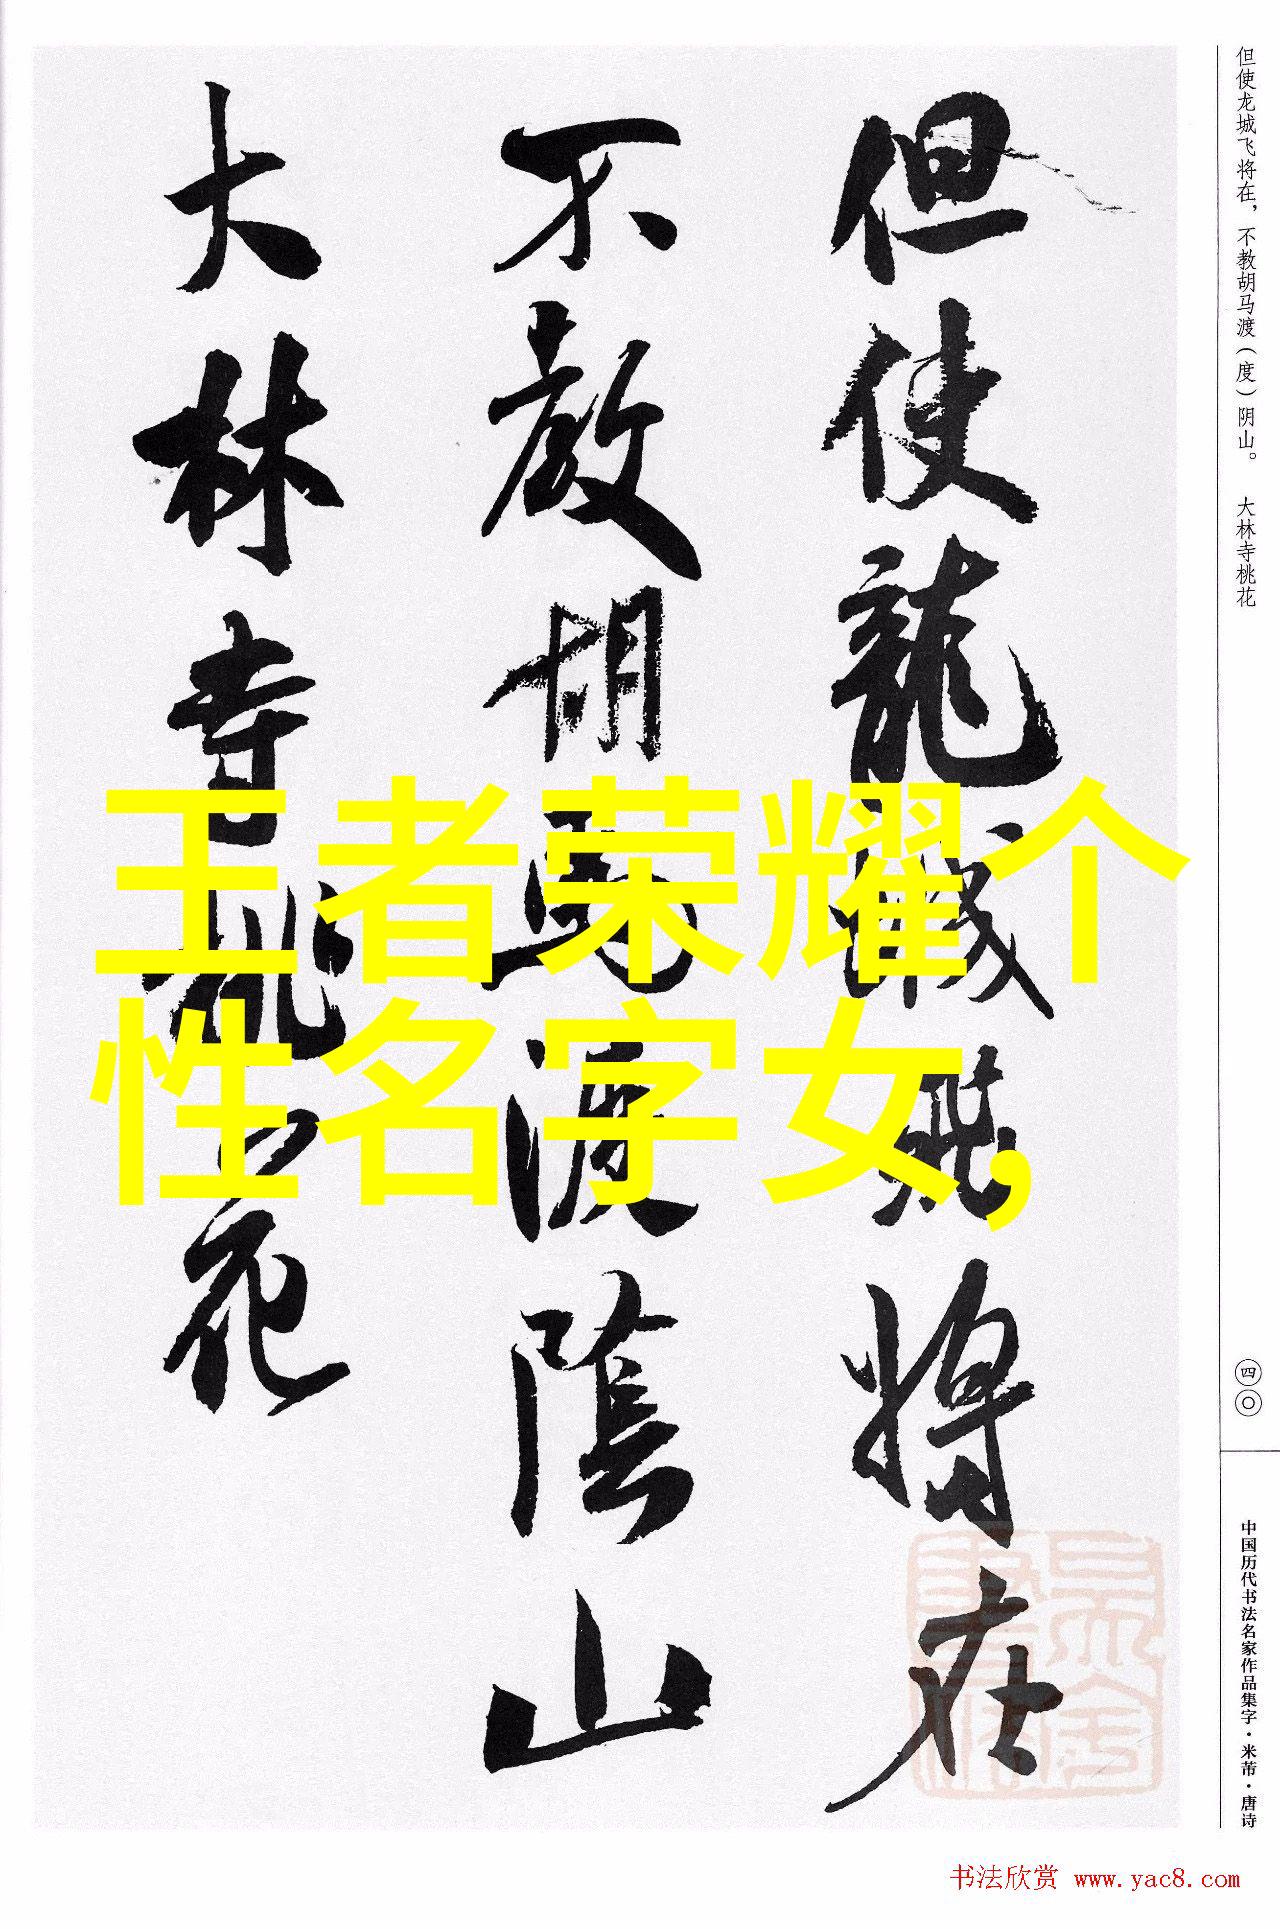 但使龙城飞将在，不教胡马渡（度）阴山。 大林寺桃花
但使龍城飛將在
不教胡馬渡陰山
大林寺桃花
王者荣耀个
性名字女,
四〇
中国历代书法名家作品集字·米芾·唐诗
书法欣赏 www.yac8.com